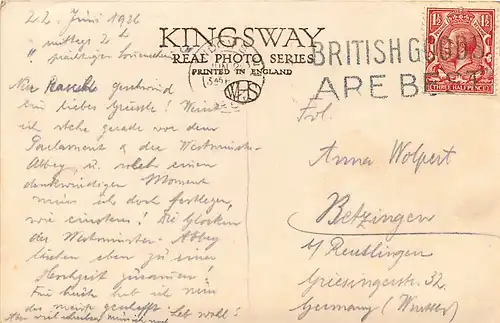 22. Juni 1926
mittags 2 h
prächtiges
KINGSWAY
REAL PHOTO SERIES
PRINTED IN ENGLAND
WHS
BRITISH GOODS
ARE BEST
THREE HALFPENCE
Nur rasch geschwind
ein liebes Grüssle!
ich stehe gerade vor dem
Parlament & der Westminster-
Abbey, u. solch einen
denkwürdigen Moment
muss ich doch festlegen,
wie einstens! Die Glocken
der Westminster-Abbey
läuten eben zu einer
Hochzeit zusammen!
Für heute hab ich nun
das meiste geschafft
Leb wohl!
Frl.
Anna Wolpert
Betzingen
b/ Reutlingen
Griesingerstr. 32
Germany (Württbg)